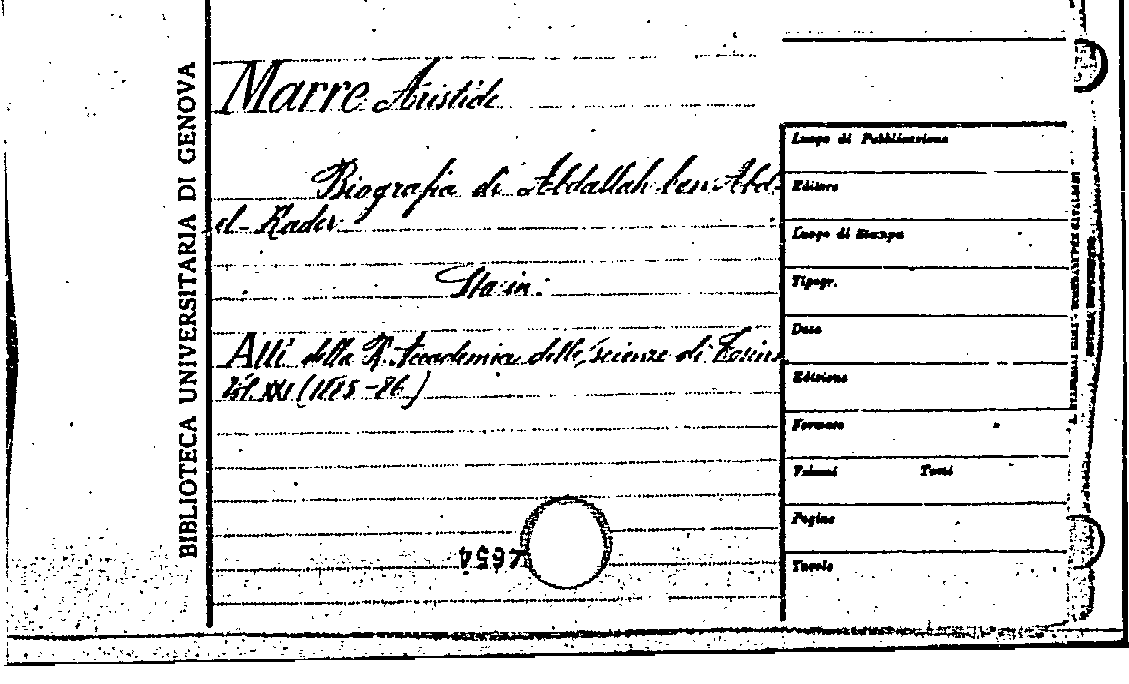 BIBLIOTECA UNIVERSITARIA DI GENOVA
Marre Aristide
Biografia di Abdallah ben Abd-
el-Kader
Sta in:
Atti della R. Accademia delle scienze di Torino
Vol. XXI (1885-86)
Luogo di Pubblicazione
Editore
Luogo di Stampa
Tipogr.
Data
Edizione
Formato
Volumi Tomi
Pagine
Tavole